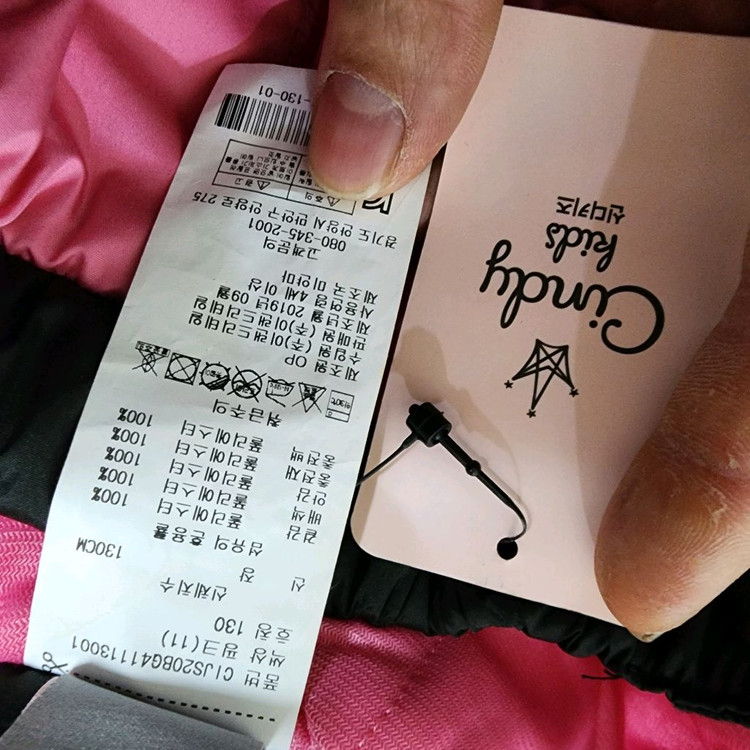 품번 CIJS20BG41113001
색상 핑크(11)
호칭 130
신체치수
신 장 130CM
섬유의 혼용률
겉감 폴리에스터 100%
배색 폴리에스터 100%
안감 폴리에스터 100%
충전재 폴리에스터 100%
충전백 폴리에스터 100%
취급주의
제조원 OP
수입원 (주)이랜드리테일
판매원 (주)이랜드리테일
제조년월 2019년 09월
사용연령 4세 이상
제조국 미얀마
고객문의
080-345-2001
경기도 안양시 만안구 안양로 275
주의 경고
-130-01
Cindy
kids
신디키즈